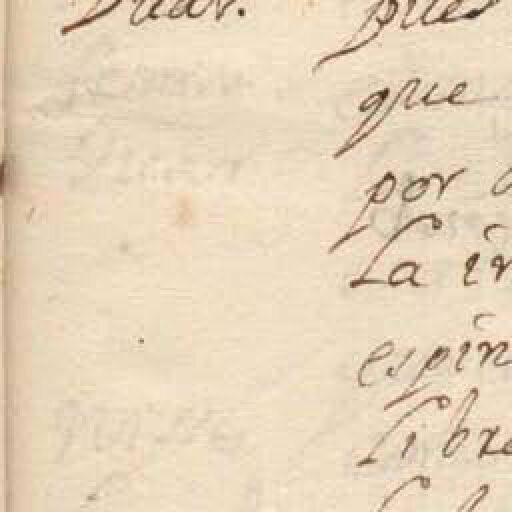 Duar. pues
que
por
La in
espin
Libre